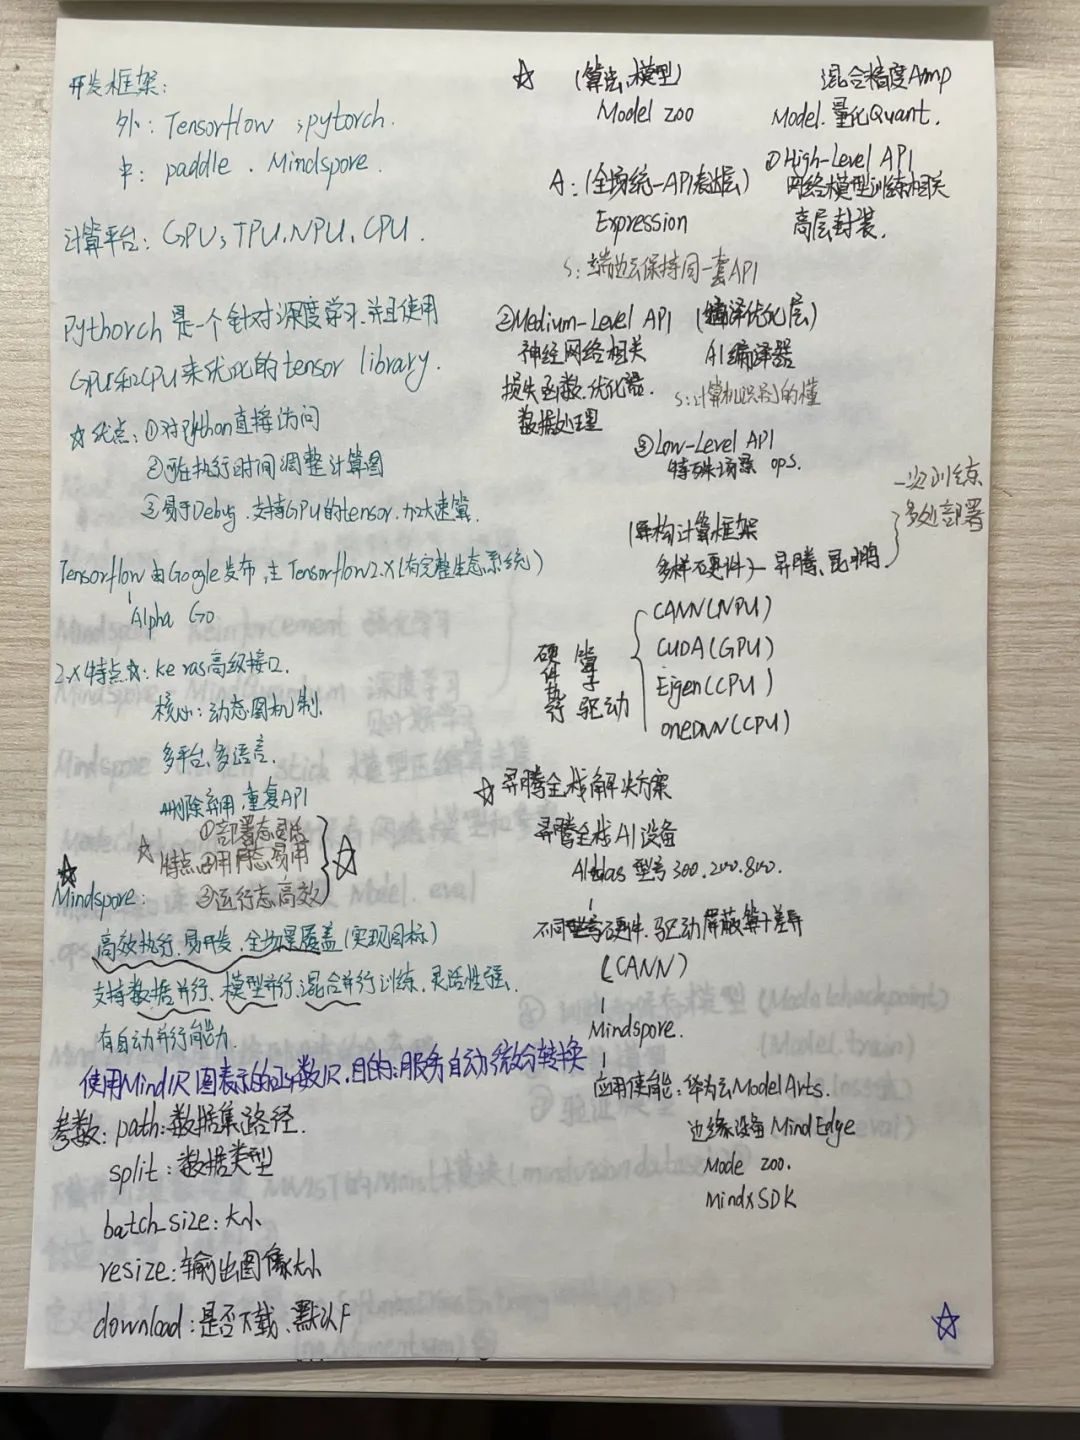 开发框架：
外：Tensorflow ；pytorch．
中：paddle . Mindspore.
计算平台：GPU；TPU、NPU、CPU．
Pythorch 是一个针对深度学习、并且使用
GPU和CPU来优化的tensor library．
☆优点：①对Python直接访问
②可在执行时间调整计算图
③易于Debug．支持GPU的tensor．加大速算．
Tensorflow 由Google发布，主Tensorflow2.X（有完整生态系统）
Alpha Go
2.X特点☆：Keras高级接口．
核心：动态图机制．
多平台、多语言．
删除弃用、重复API
①部署态灵活
☆特点②用户态易用
③运行态高效
☆
☆
Mindspore：
高效执行、易开发、全场景覆盖（实现目标）
支持数据并行、模型并行、混合并行训练，灵活性强．
有自动并行能力．
使用MindIR图表示的函数IR，目的：服务自动微分转换
参数：path：数据集路径．
split：数据类型
batch_size：大小
resize：输出图像大小
download：是否下载、默认F
☆ （算法、模型）
Model zoo
混合精度Amp
Model．量化Quant．
A：（全场统一API表达层）
Expression
S：端边云保持同一套API
①High-Level API
网络模型训练相关
高层封装．
②Medium-Level API
神经网络相关
损失函数、优化器．
数据处理
（编译优化层）
AI编译器
S：计算机识别的懂
③Low-Level API
特殊场景 ops．
（异构计算框架
多样石更件）— 昇腾、昆鹏
一次训练
多处部署
硬件执行
算子
驱动
CANN(NPU)
CUDA(GPU)
Eigen(CPU)
oneDNN(CPU)
☆昇腾全栈解决方案
昇腾全栈AI设备
Altlas 型号300．200．800．
不同型号硬件．驱动屏蔽算子差异
（CANN）
Mindspore．
应用使能：华为云ModelArts．
边缘设备MindEdge
Mode zoo．
MindXSDK
☆